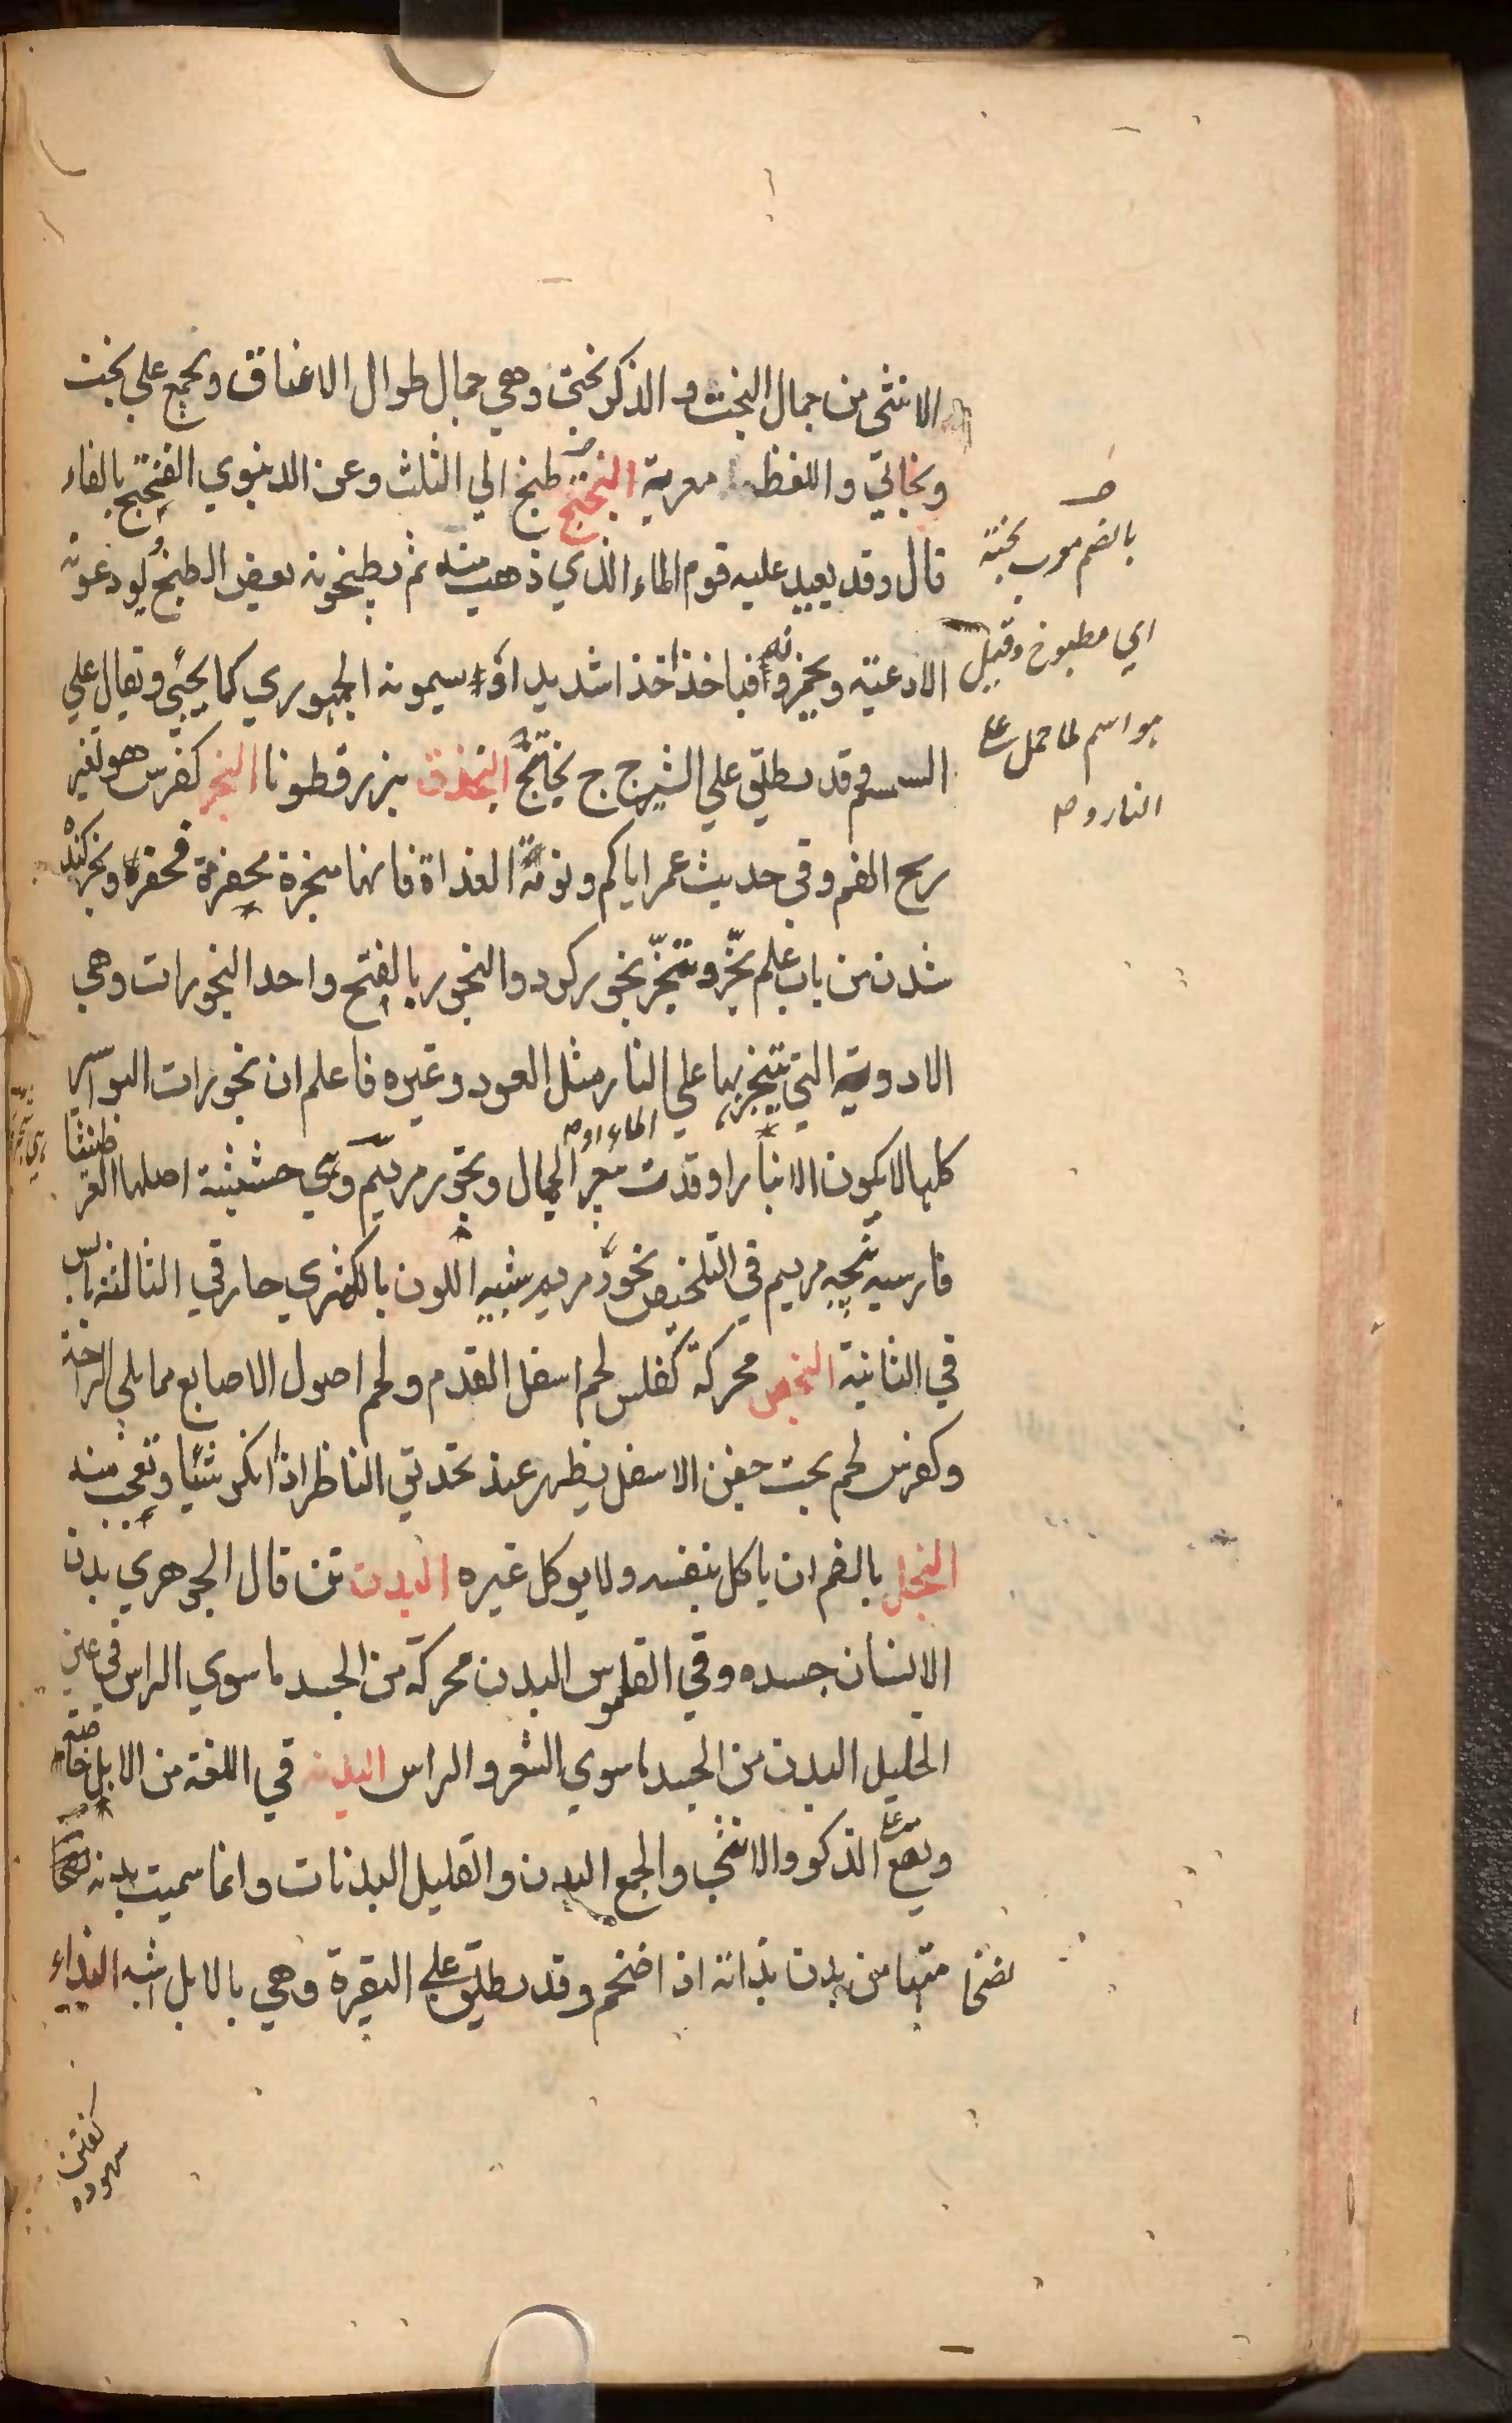 الانثى من جمال البخت والذكر بختي وهي جمال طوال الاعناق ويجمع علي بخت
وبخاتي واللفظ معربة البختج طبخ الي الثلث وعن الدينوري الفختج بالفاء
قال وقد يعيد عليه قوم الماء الذي ذهب منه ثم يطبخونه بعض الطبخ ويودعونه
الاوعية ويخمرونه فياخذ اخذا شديدا ويسمونه الجمهوري كما يجئ ويقال علي
السمسم وقد يطلق علي الشيرج ج بخاتج البخدق بزر قطونا البخر كفرس هو تغير
ريح الفم وفي حديث عمر اياكم ونومة الغداة فانها مبخرة مجفرة وبخر كنده
شدن من باب علم بخّر وتبخّر بخور كرد والبخور بالفتح واحد البخورات وهي
الادوية التي يتبخر بها علي النار مثل العود وغيره فاعلم ان بخورات البواسير
كلها لا يكون الا بنار اوقدت ببعر الجمال وبخور مريم وهي حشيشة اصلها العرطنيثا
فارسيه پنجه مريم في التلخيص بخور مريم شبيه اللون بالكمثري حار في الثالثة يابس
في الثانية البخص محركة كفلس لحم اسفل القدم ولحم اصول الاصابع مما يلي الراحة
وكفرس لحم تحت جفن الاسفل يظهر عند تحديق الناظر اذا انكر شيئا وتعجب منه
البخل بالضم ان ياكل بنفسه ولا يوكل غيره البدن تن قال الجوهري بدن
الانسان جسده وفي القاموس البدن محركة من الجسد ما سوي الراس في عين
الخليل البدن من الجسد ما سوي الشعر والراس البدنة في اللغة من الابل خاصة
ويقع علي الذكور والانثي والجمع البدن والقليل البدنات وانما سميت بدنة
لضخامتها من بدن بدانة اذا ضخم وقد يطلق علي البقرة وهي بالابل اشبه البذاء
بالضم معرب پخته
اي مطبوخ وقيل
هو اسم لما حمل علي
النار
گفتن
بيهوده